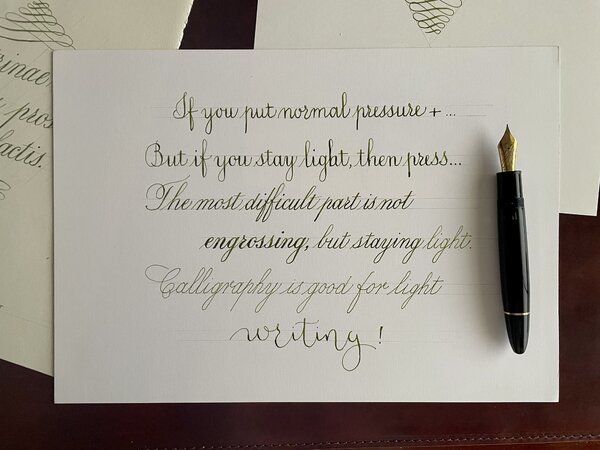 rinae
pros
lactis.
If you put normal pressure + ...
But if you stay light, then press...
The most difficult part is not
engrossing, but staying light.
Calligraphy is good for light
writing!